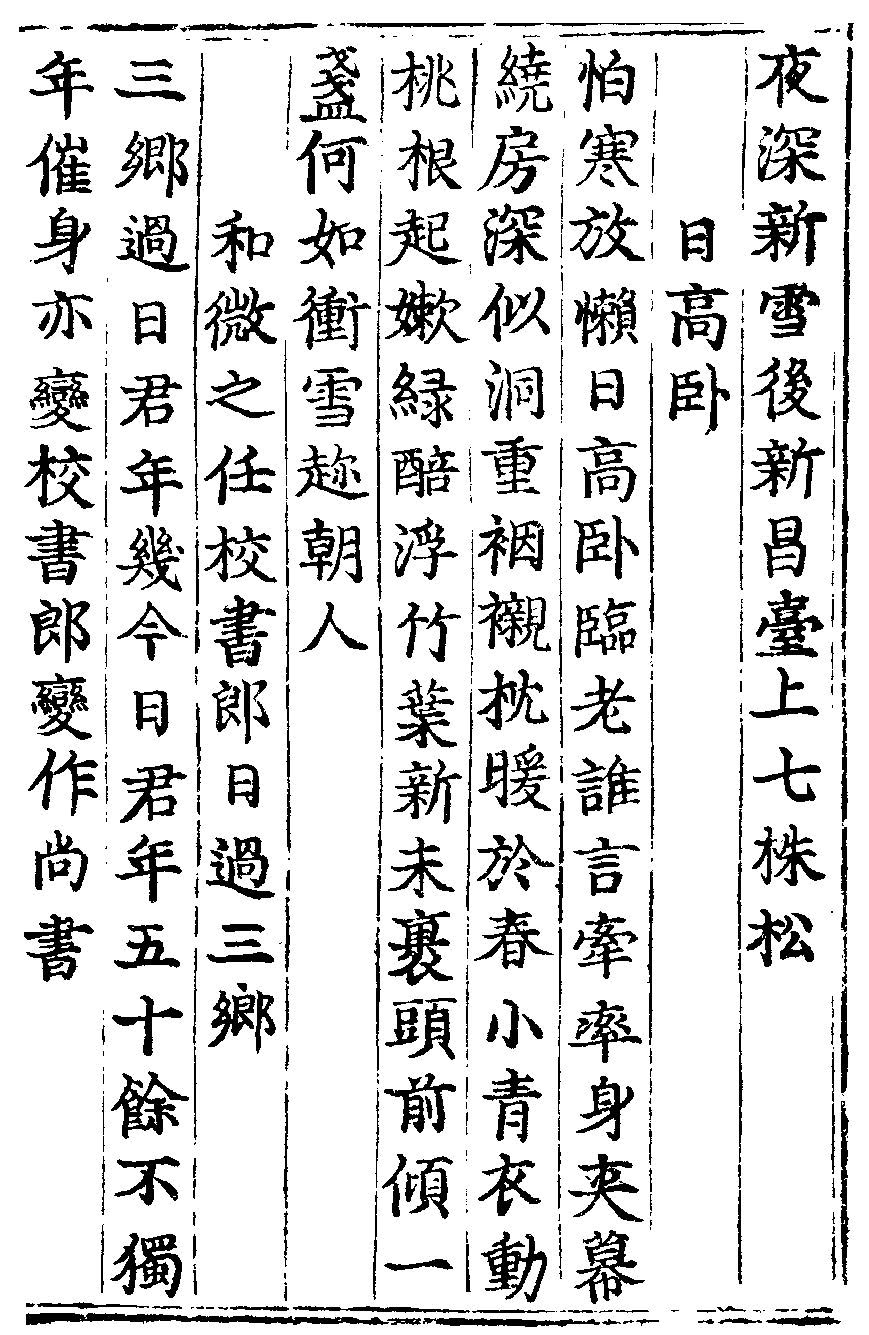 夜深新雪後新昌臺上七株松
日高卧
怕寒放懶日高卧臨老誰言牽率身夾幕
繞房深似洞重裀襯枕暖於春小青衣動
桃根起嫰緑醅浮竹葉新未裹頭前傾一
盞何如衝雪趂朝人
和微之任校書郎日過三鄉
三鄉過日君年幾今日君年五十餘不獨
年催身亦變校書郎變作尚書